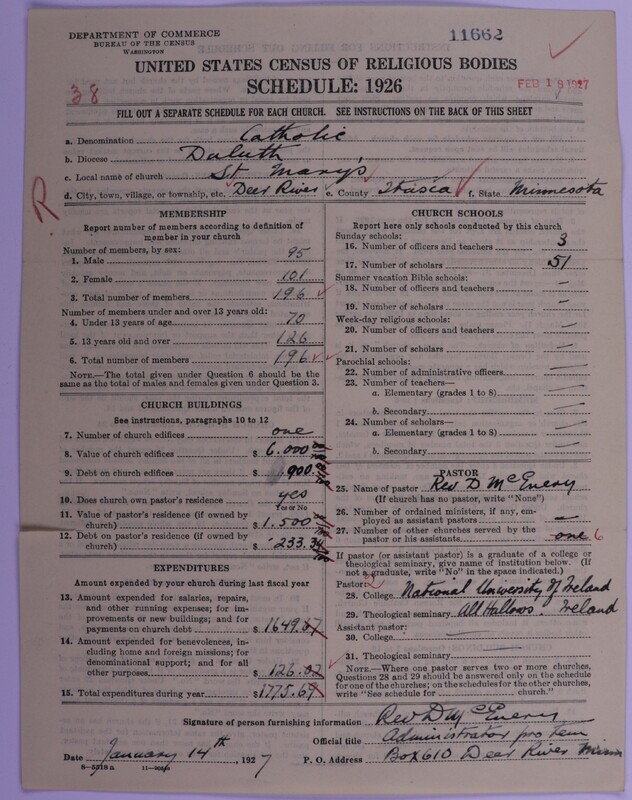 DEPARTMENT OF COMMERCE
BUREAU OF THE CENSUS
WASHINGTON
11662
UNITED STATES CENSUS OF RELIGIOUS BODIES
SCHEDULE: 1926
38
FEB 18 1927
FILL OUT A SEPARATE SCHEDULE FOR EACH CHURCH. SEE INSTRUCTIONS ON THE BACK OF THIS SHEET
a. Denomination Catholic
b. Diocese Duluth
c. Local name of church St Mary's
d. City, town, village, or township, etc. Deer River e. County Itasca f. State Minnesota
R
MEMBERSHIP
Report number of members according to definition of
member in your church
Number of members, by sex:
1. Male 95
2. Female 101
3. Total number of members 196
Number of members under and over 13 years old:
4. Under 13 years of age 70
5. 13 years old and over 126
6. Total number of members 196
NOTE.—The total given under Question 6 should be the
same as the total of males and females given under Question 3.
CHURCH BUILDINGS
See instructions, paragraphs 10 to 12
7. Number of church edifices one
8. Value of church edifices $ 6.000
9. Debt on church edifices $ 900.
10. Does church own pastor's residence yes
Yes or No
11. Value of pastor's residence (if owned by
church) $ 1.500
12. Debt on pastor's residence (if owned by
church) $ 233.34
EXPENDITURES
Amount expended by your church during last fiscal year
13. Amount expended for salaries, repairs,
and other running expenses; for im-
provements or new buildings; and for
payments on church debt $ 1649.57
14. Amount expended for benevolences, in-
cluding home and foreign missions; for
denominational support; and for all
other purposes $ 126.02
15. Total expenditures during year $ 1775.69
CHURCH SCHOOLS
Report here only schools conducted by this church
Sunday schools:
16. Number of officers and teachers 3
17. Number of scholars 51
Summer vacation Bible schools:
18. Number of officers and teachers —
19. Number of scholars —
Week-day religious schools:
20. Number of officers and teachers —
21. Number of scholars —
Parochial schools:
22. Number of administrative officers —
23. Number of teachers—
a. Elementary (grades 1 to 8) —
b. Secondary —
24. Number of scholars—
a. Elementary (grades 1 to 8) —
b. Secondary —
PASTOR
25. Name of pastor Rev D McEnery
(If church has no pastor, write "None")
26. Number of ordained ministers, if any, em-
ployed as assistant pastors —
27. Number of other churches served by the
pastor or his assistants one 6
If pastor (or assistant pastor) is a graduate of a college or
theological seminary, give name of institution below. (If
not a graduate, write "No" in the space indicated.)
Pastor: 2
28. College National University of Ireland
29. Theological seminary All Hallows. Ireland
Assistant pastor:
30. College —
31. Theological seminary —
NOTE.—Where one pastor serves two or more churches,
Questions 28 and 29 should be answered only on the schedule
for one of the churches; on the schedules for the other churches,
write "See schedule for church."
Signature of person furnishing information Rev D McEnery
Official title Administrator pro tem
Date January 14th, 1927 P. O. Address Box 610 Deer River Minn
8—5518 a